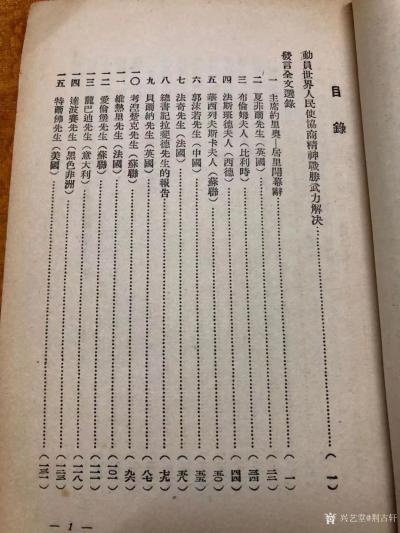 目錄
動員世界人民使協商精神戰勝武力解决……(一)
發言全文選錄
一 主席約里奥—居里開幕辭……(一)
二 夏菲爾先生(英國)……(二二)
三 布倫姆夫人(比利時)……(三四)
四 法斯班德夫人(西德)……(四四)
五 華西列夫斯卡夫人(蘇聯)……(五〇)
六 郭沫若先生(中國)……(五五)
七 法奇先生(法國)……(五八)
八 總書記拉斐德先生的報告……(七九)
九 貝爾納先生(英國)……(八七)
一〇 考涅楚克先生(蘇聯)……(九六)
一一 維熱里先生(法國)……(一〇一)
一二 愛倫堡先生(蘇聯)……(一一二)
一三 龍巴迪先生(意大利)……(一一八)
一四 達波賽先生(黑色非洲)……(一二三)
一五 特爾佛先生(美國)……(一三一)
— 1 —
兴艺堂@荆古轩